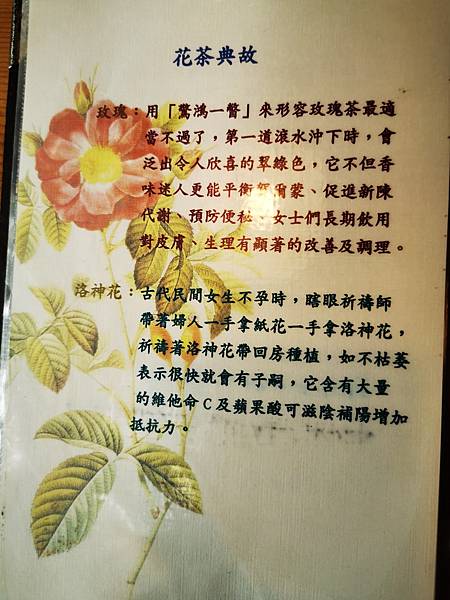 花茶典故
玫瑰：用「驚鴻一瞥」來形容玫瑰茶最適
當不過了，第一道滾水沖下時，會
泛出令人欣喜的翠綠色，它不但香
味迷人更能平衡賀爾蒙、促進新陳
代謝、預防便祕、女士們長期飲用
對皮膚、生理有顯著的改善及調理。
洛神花：古代民間女生不孕時，瞎眼祈禱師
帶著婦人一手拿紙花一手拿洛神花，
祈禱著洛神花帶回房種植，如不枯萎
表示很快就會有子嗣，它含有大量
的維他命C及蘋果酸可滋陰補陽增加
抵抗力。